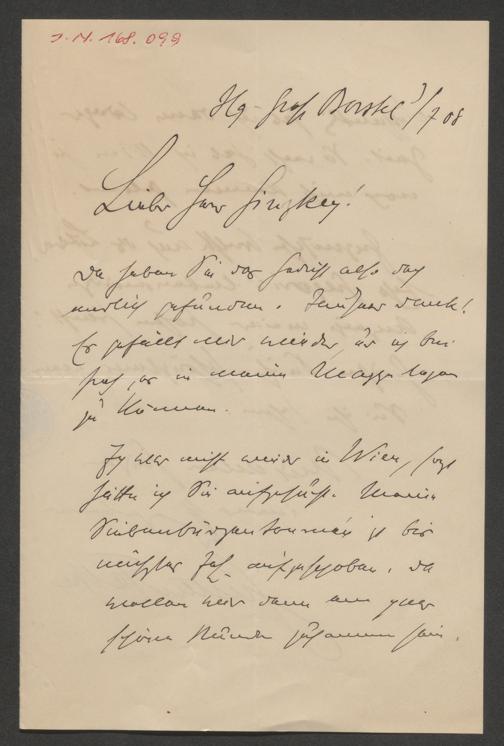 J.N. 168.099
Hbg Groß Borstel 3/7 08
Lieber Herr Ginzkey!
Da haben Sie das Gedicht also doch
neulich gefunden. Innigen Dank!
Er gefällt mir wieder, u ich bin
froh, es in meine Mappe legen
zu können.
Ich war nicht wieder in Wien, sonst
hätte ich Sie aufgesucht. Meine
Siebenbürgentournée ist bis
nächstes Jahr aufgeschoben. Da
wollen wir dann ein paar
schöne Stunden zusammen sein.